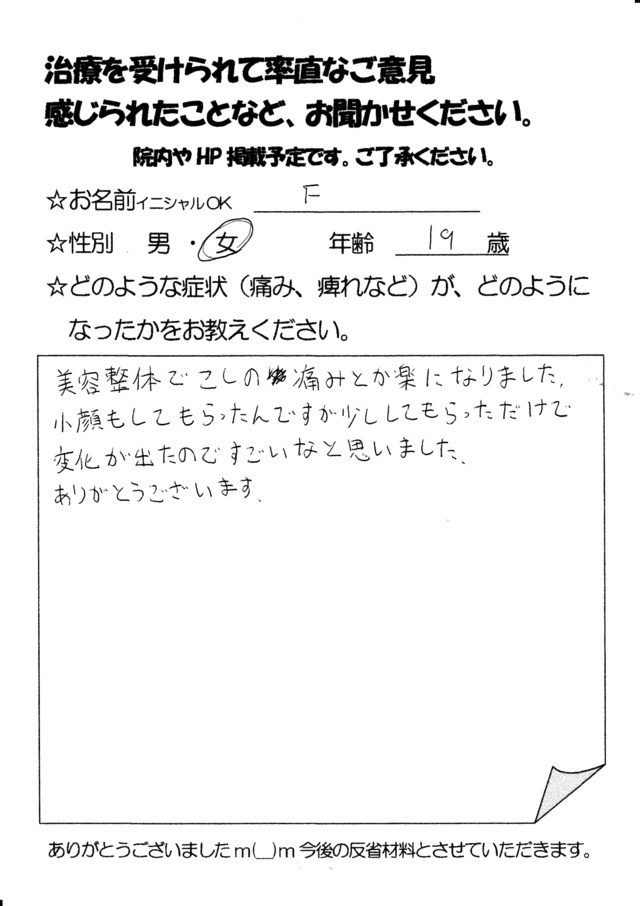 治療を受けられて率直なご意見
感じられたことなど、お聞かせください。
院内やHP掲載予定です。ご了承ください。
☆お名前イニシャルOK F
☆性別 男・女 年齢 19 歳
☆どのような症状（痛み、痺れなど）が、どのように
なったかをお教えください。
美容整体でこしの痛みとか楽になりました。
小顔もしてもらったんですが少ししてもらっただけで
変化が出たのですごいなと思いました。
ありがとうございます。
ありがとうございましたm(__)m今後の反省材料とさせていただきます。